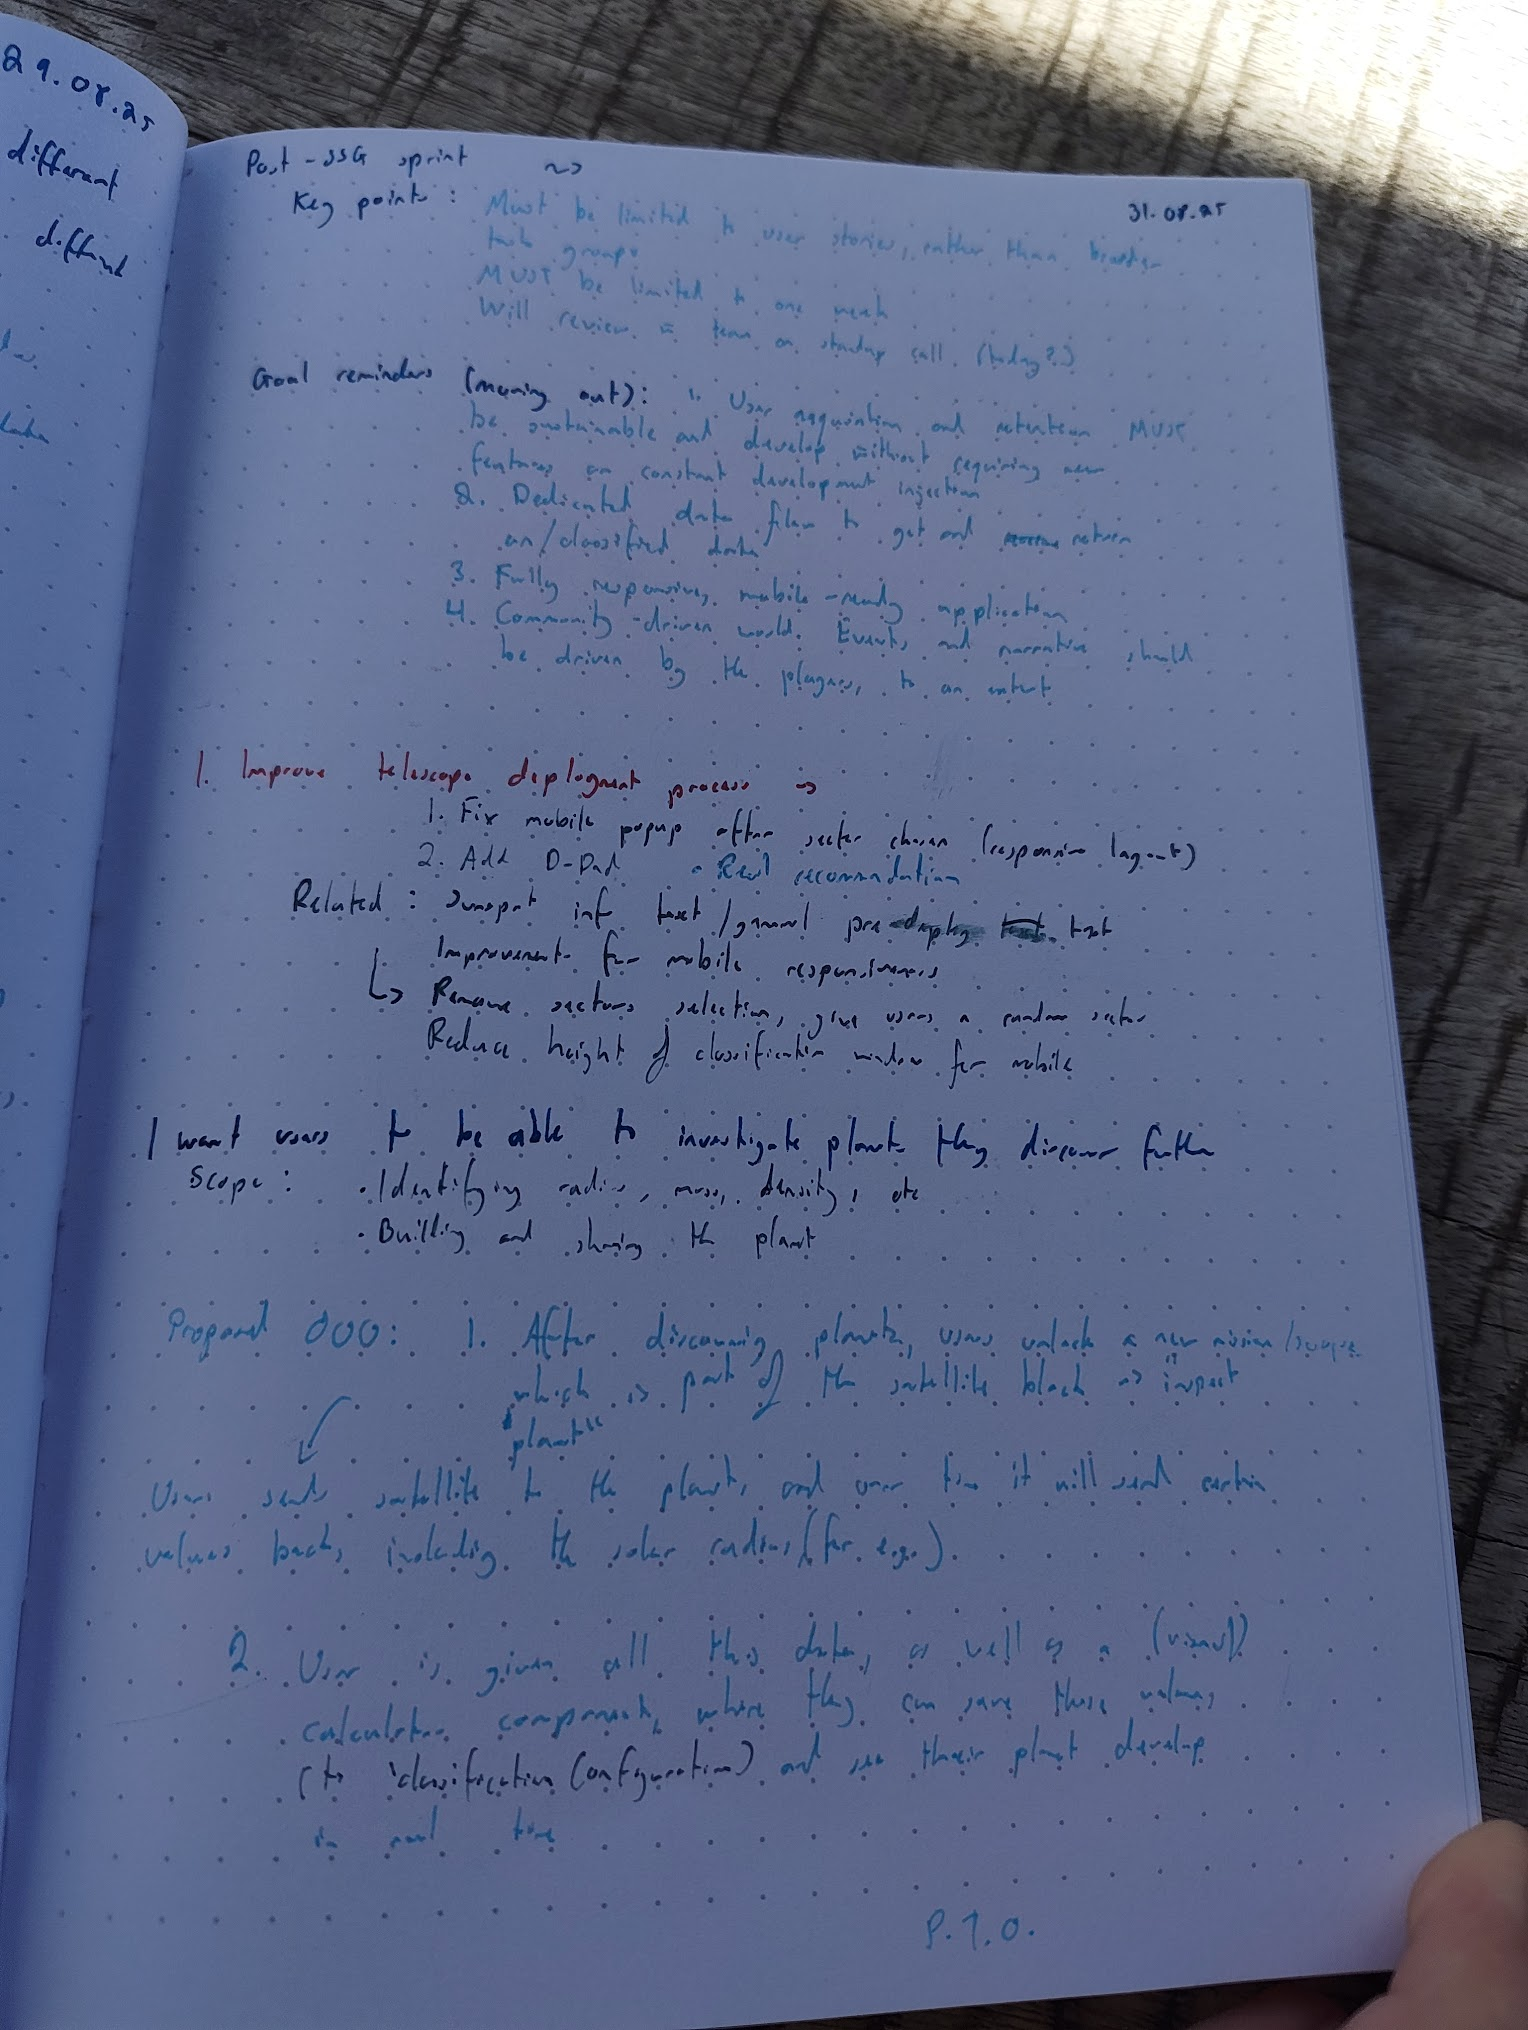 29.08.25
different
different
Post-SSG sprint ~>
31.08.25
Key points: Must be limited to user stories, rather than broader
task groups
MUST be limited to one week
Will review in team on standup call (today?)
Goal reminders (moving out): 1. User acquisition and retention MUST
be sustainable and develop without requiring new
features or constant development injection
2. Dedicated data flow to get and return
un/classified data
3. Fully responsive, mobile-ready application
4. Community-driven world. Events and narrative should
be driven by the players, to an extent
1. Improve telescope deployment process ->
1. Fix mobile popup after sector chosen (responsive layout)
2. Add D-Pad - recommendation
Related: Sunspot info text/general pre-deploy text
Improvements for mobile responsiveness
↳ Remove sectors selection, give users a random sector
Reduce height of classification window for mobile
I want users to be able to investigate planets they discover further
Scope: • Identifying radius, mass, density, etc
• Building and sharing the planet
Proposed: 1. After discovering planets, users unlock a new mission/
which is part of the satellite block -> "inspect
planet"
User sends satellite to the planet, and over time it will send certain
values back, including the solar radius (for e.g.).
2. User is given all this data, as well as a (visual)
calculator component, where they can save these values
(to 'classificationConfiguration) and see their planet develop
in real time
P.T.O.